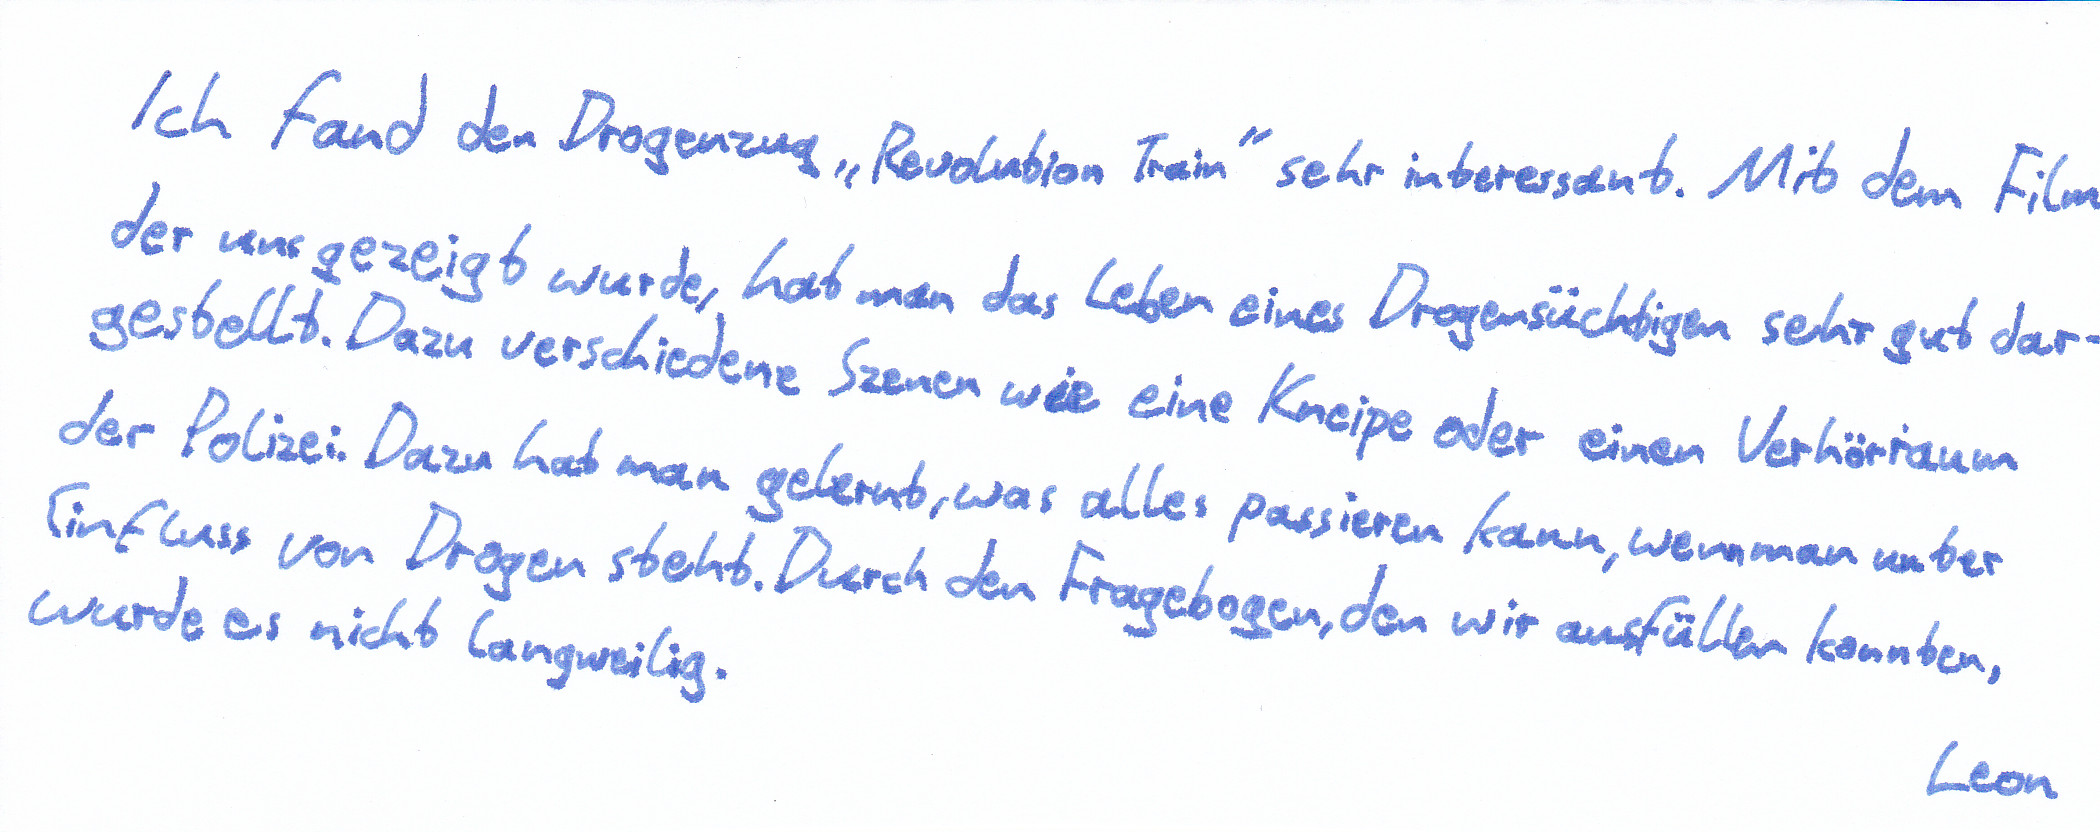 Ich fand den Drogenzug „Revolution Train“ sehr interessant. Mit dem Film
der uns gezeigt wurde, hat man das Leben eines Drogensüchtigen sehr gut dar-
gestellt. Dazu verschiedene Szenen wie eine Kneipe oder einen Verhörraum
der Polizei. Dazu hat man gelernt, was alles passieren kann, wenn man unter
Einfluss von Drogen steht. Durch den Fragebogen, den wir ausfüllen konnten,
wurde es nicht langweilig.
Leon